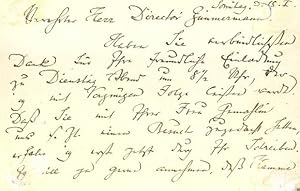 Sonntag, d. 15. I.
Verehrter Herr Director Zimmermann!
Haben Sie verbindlichsten
Dank für Ihre freundliche Einladung
zu Dienstag Abend um 8½ Uhr, der
ich mit Vergnügen Folge leisten werde.
Daß Sie mit Ihrer Frau Gemahlin
uns einen Besuch zugedacht hatten
erfahre ich erst jetzt durch Ihr Schreiben.
Ich will ja gerne annehmen, daß